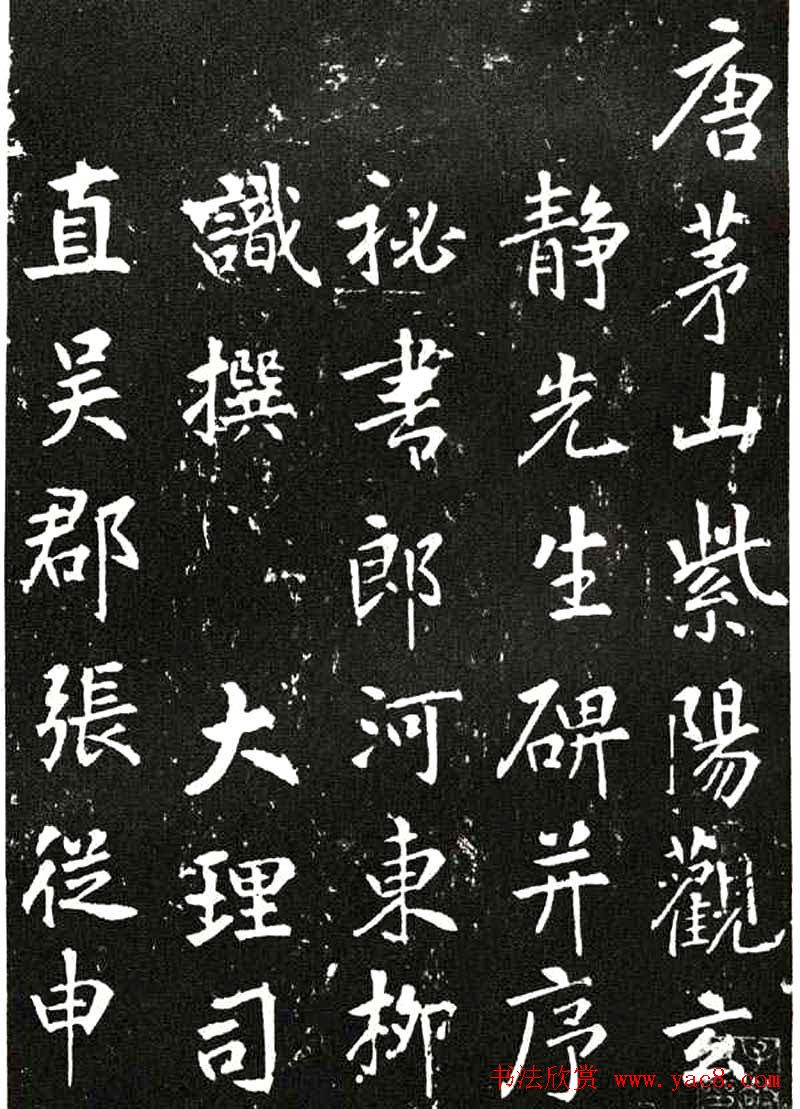 唐茅山紫陽觀玄
静先生碑并序
祕書郎河東柳
識撰 大理司
直吴郡張從申
书法欣赏 www.yac8.com